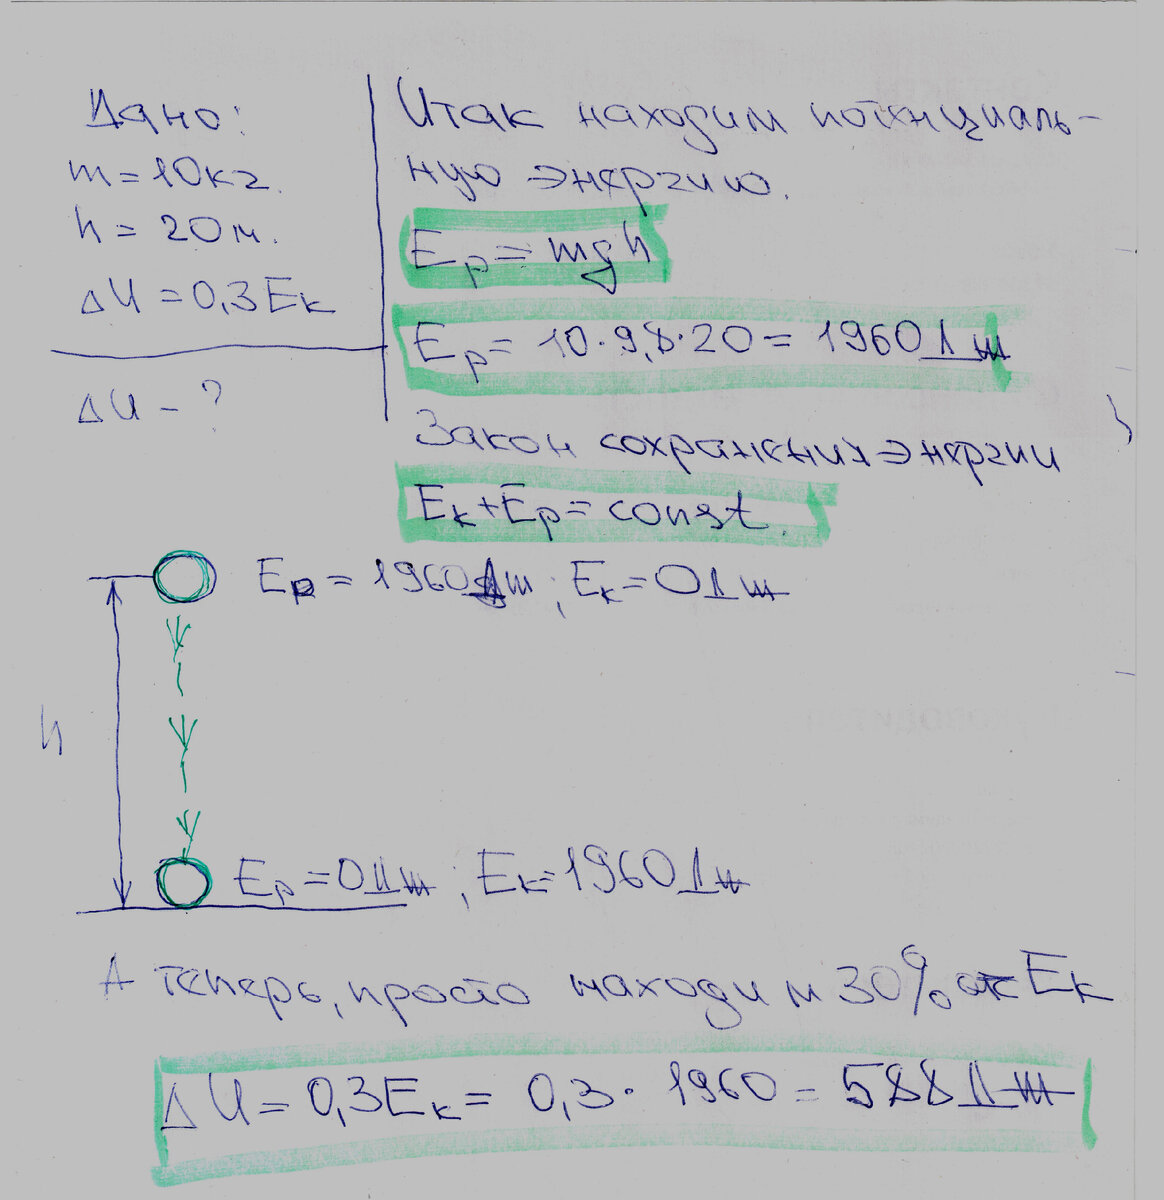 Дано:
m = 10кг.
h = 20м.
ΔU = 0,3Eк
ΔU - ?
Итак находим потенциаль-
ную энергию.
Ep = mgh
Ep = 10·9,8·20 = 1960 Дж
Закон сохранения энергии
Eк + Ep = const.
Ep = 1960 Дж ; Eк = 0 Дж
h
Ep = 0 Дж ; Eк = 1960 Дж
А теперь, просто находим 30% от Eк
ΔU = 0,3Eк = 0,3 · 1960 = 588 Дж